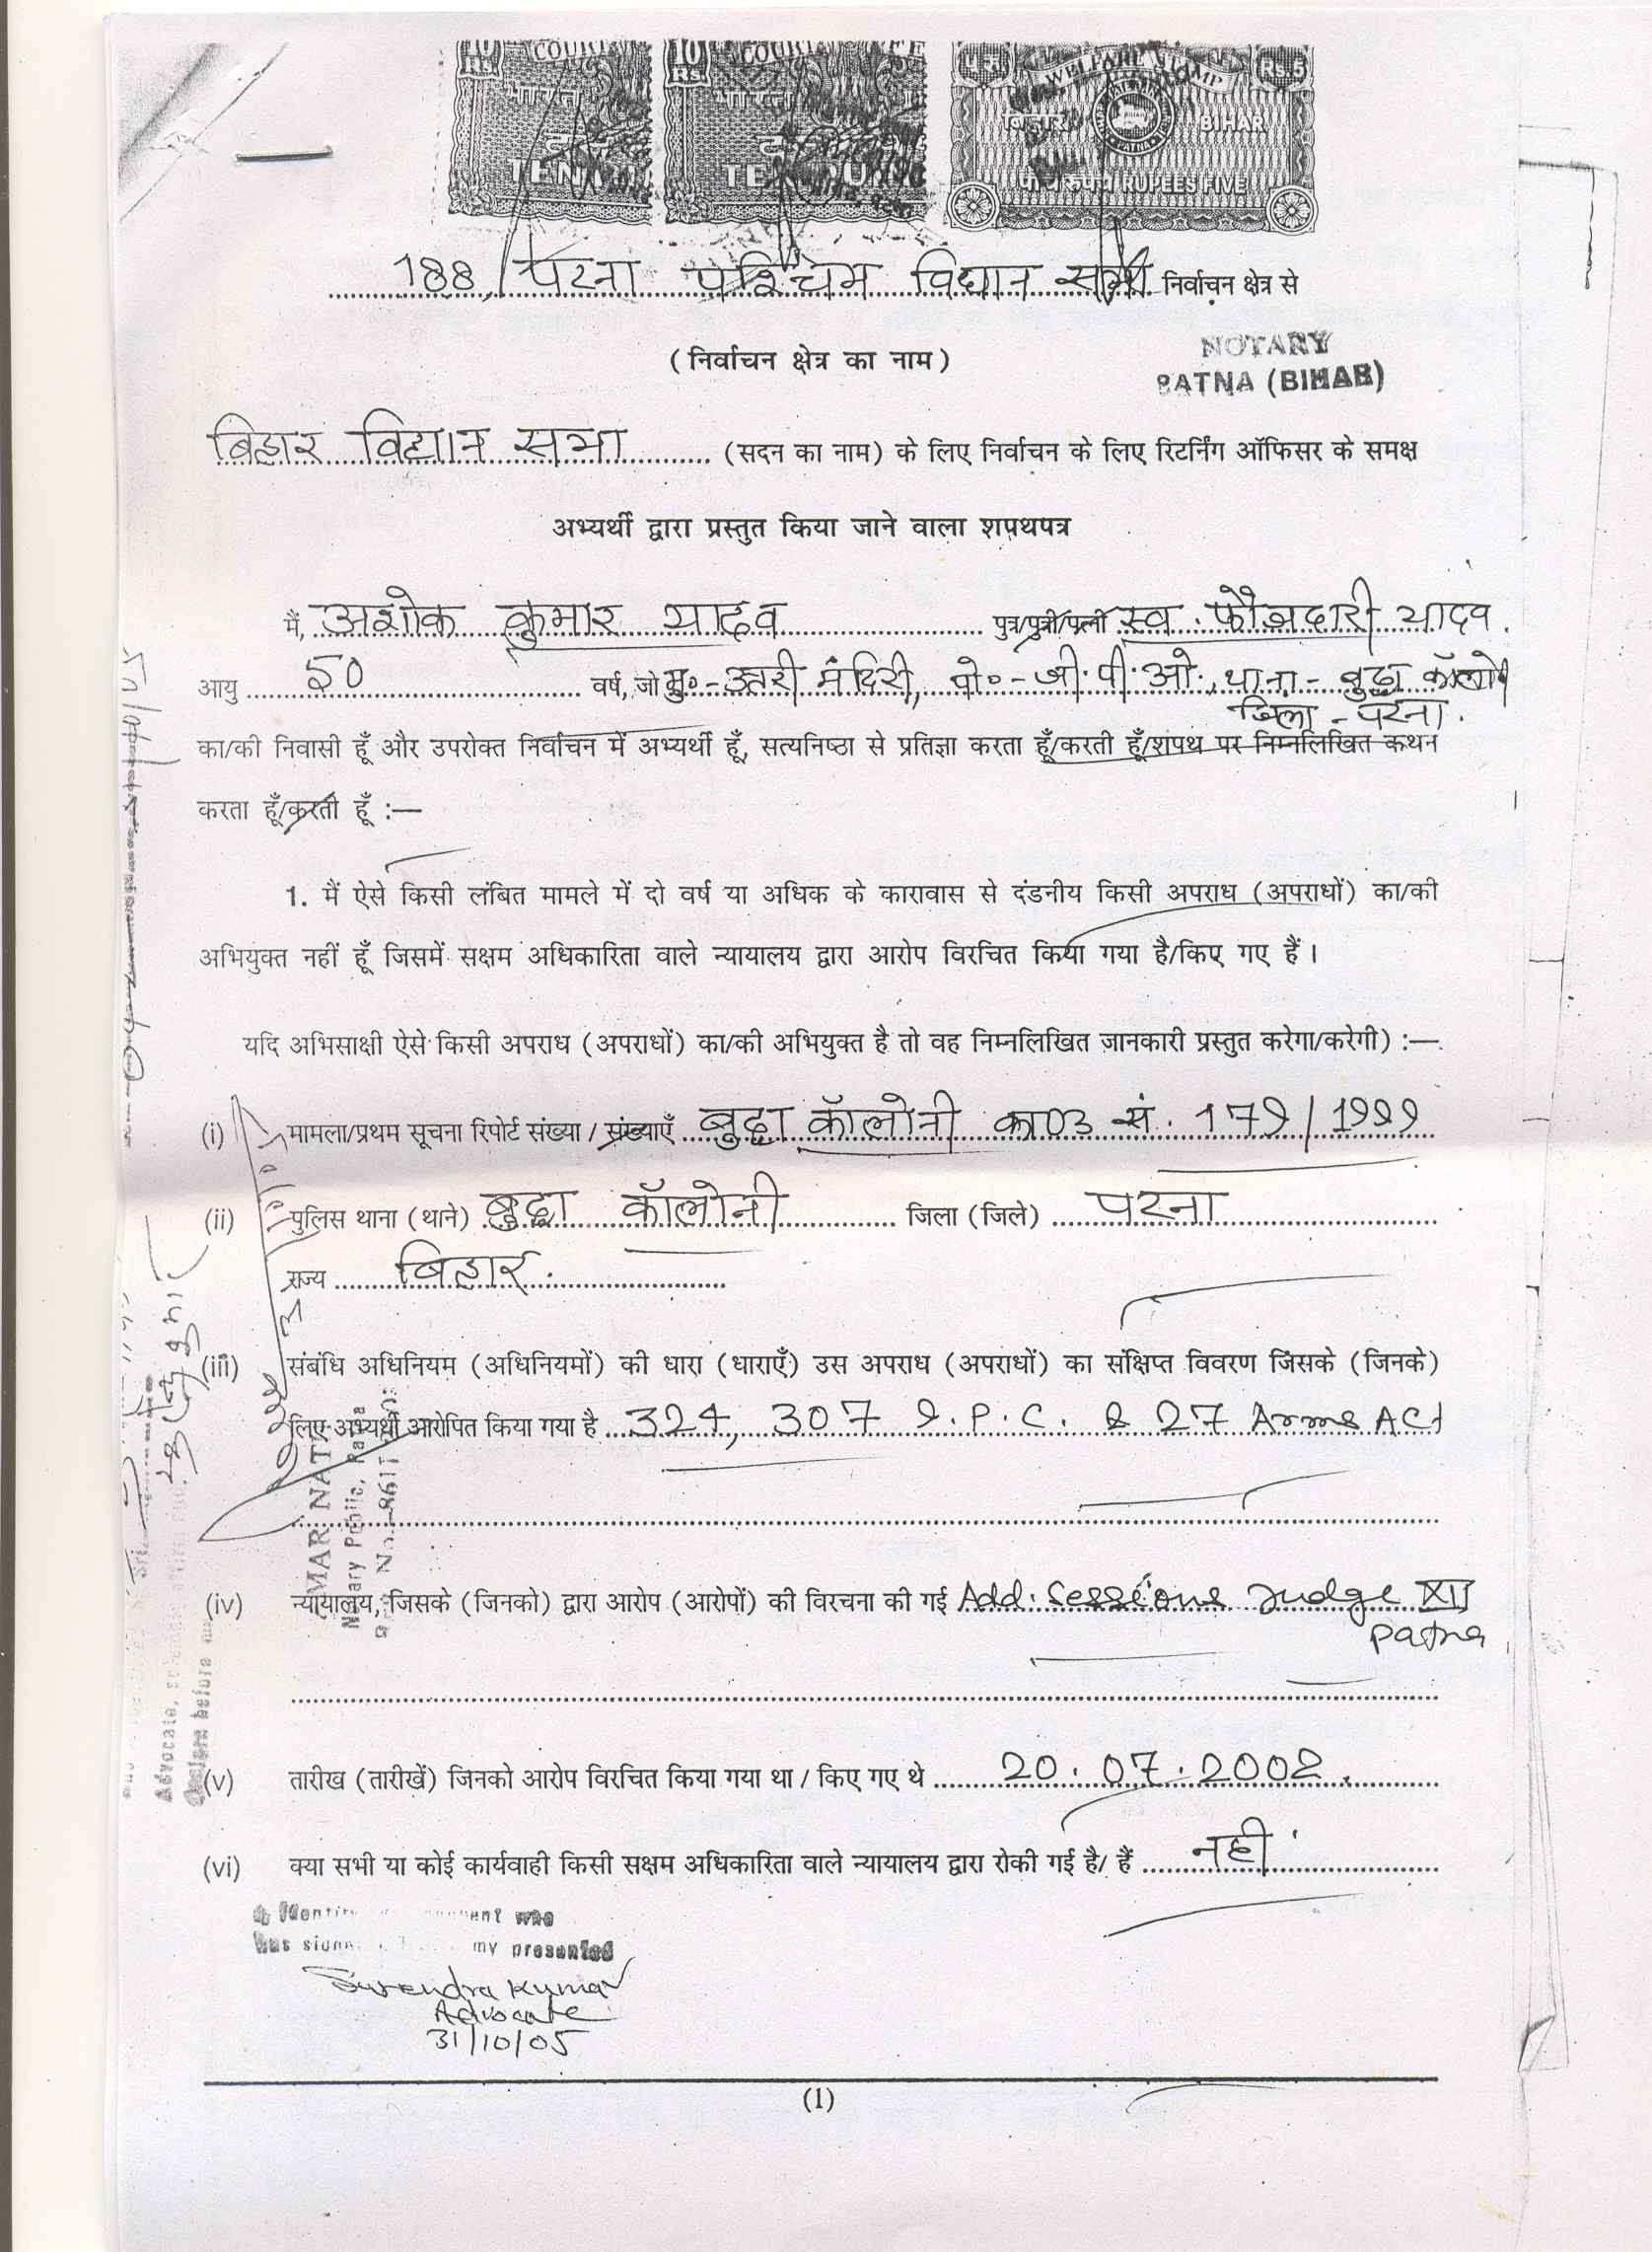 10 Rs. COURT
भारत
TEN
10 Rs. COURT FEE
भारत
TEN
WELFARE STAMP Rs.5
बिहार BIHAR
PATNA
पांच रुपये RUPEES FIVE
188, पटना पश्चिम विधान सभा निर्वाचन क्षेत्र से
(निर्वाचन क्षेत्र का नाम)
NOTARY
PATNA (BIHAR)
बिहार विधान सभा (सदन का नाम) के लिए निर्वाचन के लिए रिटर्निंग ऑफिसर के समक्ष
अभ्यर्थी द्वारा प्रस्तुत किया जाने वाला शपथपत्र
मैं, अशोक कुमार यादव पुत्र/पुत्री/पत्नी स्व. फौजदारी यादव.
आयु 50 वर्ष, जो मु०-उतरी मंदिरी, पो०-जी.पी.ओ., थाना-बुद्धा कॉलोनी
जिला-पटना.
का/की निवासी हूँ और उपरोक्त निर्वाचन में अभ्यर्थी हूँ, सत्यनिष्ठा से प्रतिज्ञा करता हूँ/करती हूँ/शपथ पर निम्नलिखित कथन
करता हूँ/करती हूँ :—
1. मैं ऐसे किसी लंबित मामले में दो वर्ष या अधिक के कारावास से दंडनीय किसी अपराध (अपराधों) का/की
अभियुक्त नहीं हूँ जिसमें सक्षम अधिकारिता वाले न्यायालय द्वारा आरोप विरचित किया गया है/किए गए हैं।
यदि अभिसाक्षी ऐसे किसी अपराध (अपराधों) का/की अभियुक्त है तो वह निम्नलिखित जानकारी प्रस्तुत करेगा/करेगी) :—
(i) मामला/प्रथम सूचना रिपोर्ट संख्या / संख्याएँ बुद्धा कॉलोनी काण्ड सं. 179/1999
(ii) पुलिस थाना (थाने) बुद्धा कॉलोनी जिला (जिले) पटना
राज्य बिहार.
(iii) संबंधि अधिनियम (अधिनियमों) की धारा (धाराएँ) उस अपराध (अपराधों) का संक्षिप्त विवरण जिसके (जिनके)
लिए अभ्यर्थी आरोपित किया गया है 324, 307 I.P.C. & 27 Arms Act
(iv) न्यायालय, जिसके (जिनको) द्वारा आरोप (आरोपों) की विरचना की गई Add. Sessions Judge XII
Patna
(v) तारीख (तारीखें) जिनको आरोप विरचित किया गया था / किए गए थे 20.07.2002.
(vi) क्या सभी या कोई कार्यवाही किसी सक्षम अधिकारिता वाले न्यायालय द्वारा रोकी गई है/ हैं नहीं.
who
my presented
Surendra Kumar
Advocate
31/10/05
(1)